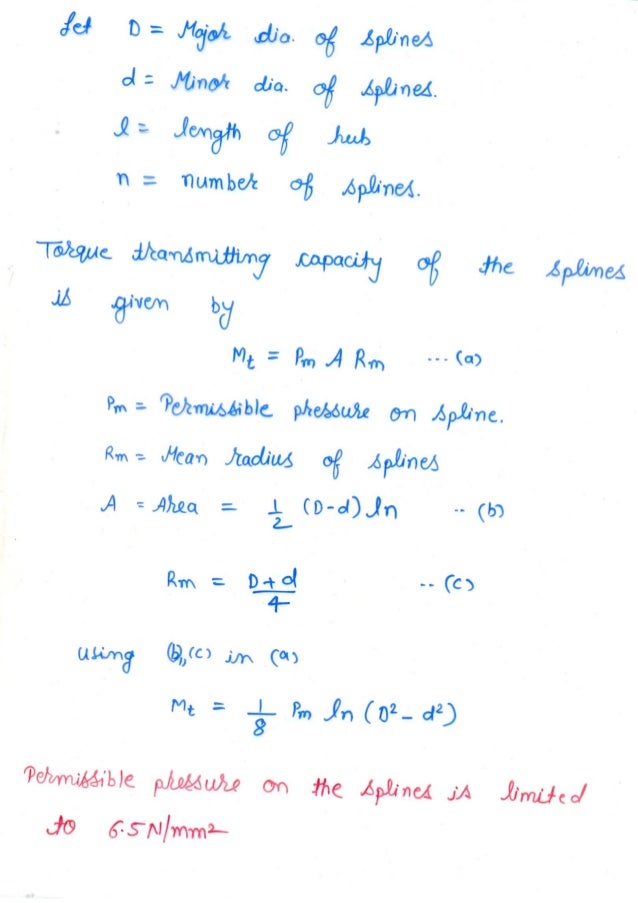 Let D = Major dia. of splines
d = Minor dia. of splines.
l = length of hub
n = number of splines.
Torque transmitting capacity of the splines
is given by
Mt = Pm A Rm ... (a)
Pm = Permissible pressure on spline.
Rm = Mean radius of splines
A = Area = 1/2 (D-d) ln .. (b)
Rm = D+d/4 .. (c)
using (b), (c) in (a)
Mt = 1/8 Pm ln (D² - d²)
Permissible pressure on the splines is limited
to 6.5 N/mm2